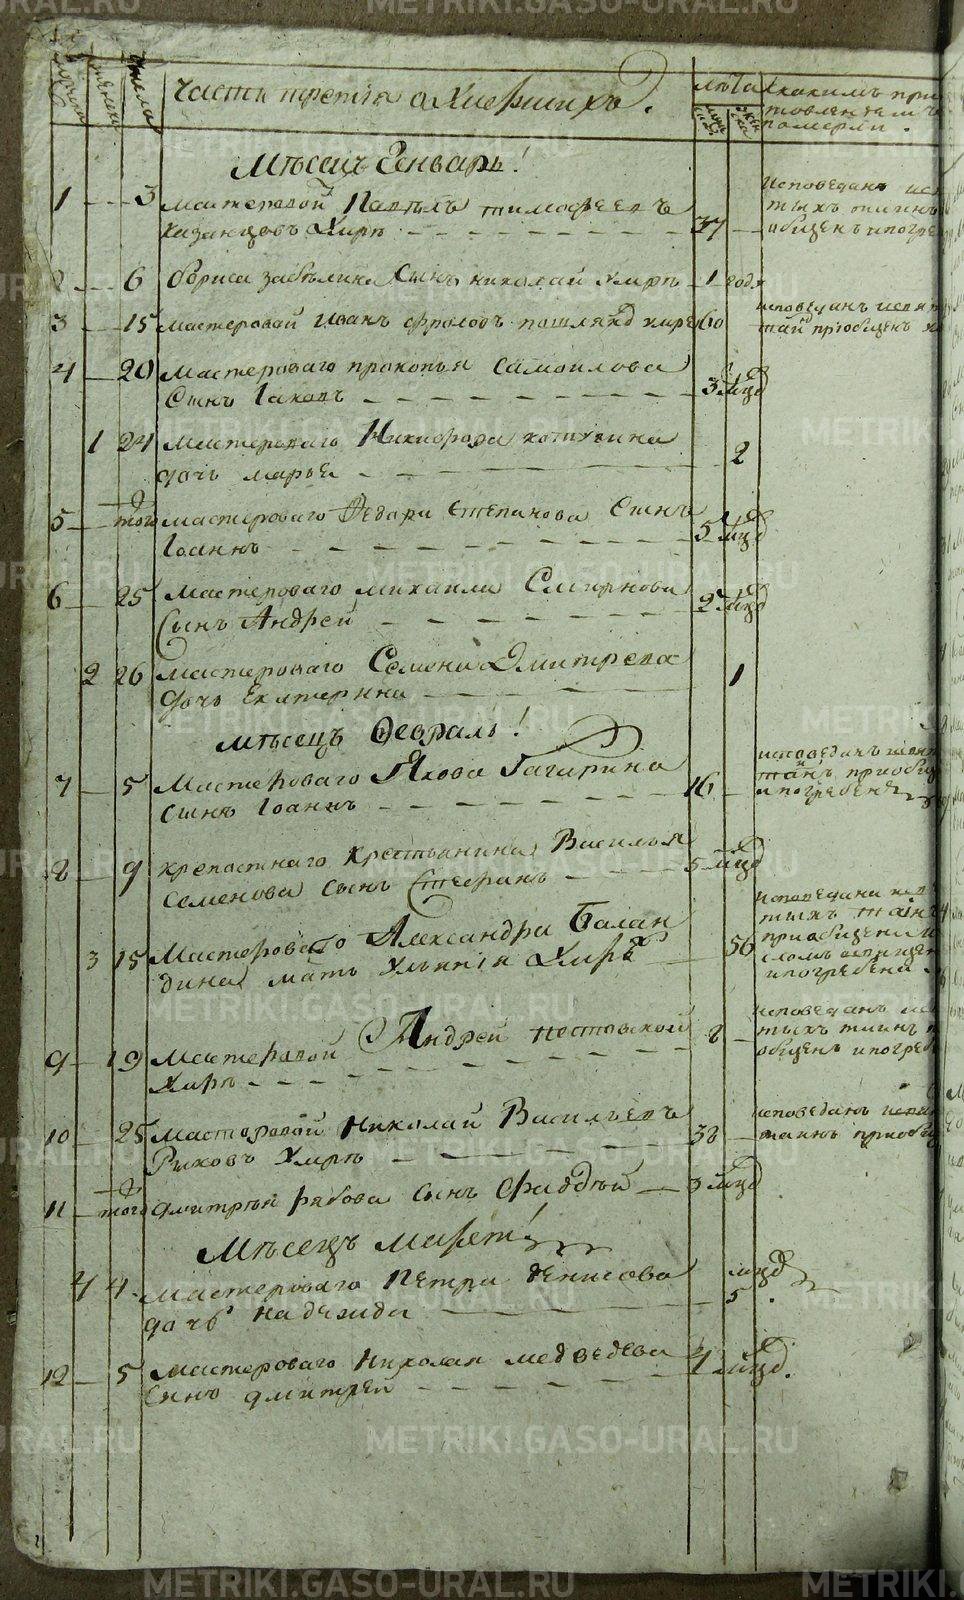 мужеска
женска
числа
Часть третiя о Умершихъ.
лѣта
мужска
женска
скакимъ при
товленiемъ
померли.
Мѣсецъ Генварь!
1 3 Мастеровой Павелъ тимофеевъ
Казанцовъ Умре 37
Исповеданъ
тыхъ таинъ
общенъ ипогре
2 6 бориса забелина Сынъ николай Умре 1 годъ
3 15 мастеровай Иванъ фроловъ умре 60
исповеданъ исвя
тай прiобщенъ
4 20 Мастероваго прокопья самоилова
Сынъ Iаковъ 3 мцд
1 24 мастероваго Никифора
дочь марья 2
5 того мастероваго Федора Степанова Сынъ
Iоаннъ 5 мцд
6 25 мастероваго михаила Смирнова
Сынъ Андрей 2 мцд
2 26 мастероваго Семена Дмитрева
дочь Екатерина 1
Мѣсецъ Февраль!
7 5 Мастероваго Якова Гагарина
Сынъ Iоаннъ 16
исповеданъ исвя
таинъ приобщ
ипогребенъ
8 9 крепостнаго Крестьянина Василья
Семенова сынъ Стефанъ 5 мцд
3 15 Мастероваго Александра Балан
дина мать Ульянiя Умре 56
исповедана
тыхъ таинъ
приобщена и
елеомъ
ипогребена
9 19 Мастеровой Андрей
Умре 8
исповеданъ
тыхъ таинъ
общенъ ипогреб
10 25 Мастеровой Николай Васильевъ
Рыковъ Умре 38
исповеданъ
таинъ приобщ
11 того дмитрѣя рябова сынъ Фаддѣй 3 мцд
Мѣсецъ Мартъ!
4 4 Мастероваго Петра денисова
дочь надежда мцд 5
12 5 Мастероваго Николая медведева
Сынъ дмитрей мцд.
METRIKI.GASO-URAL.RU